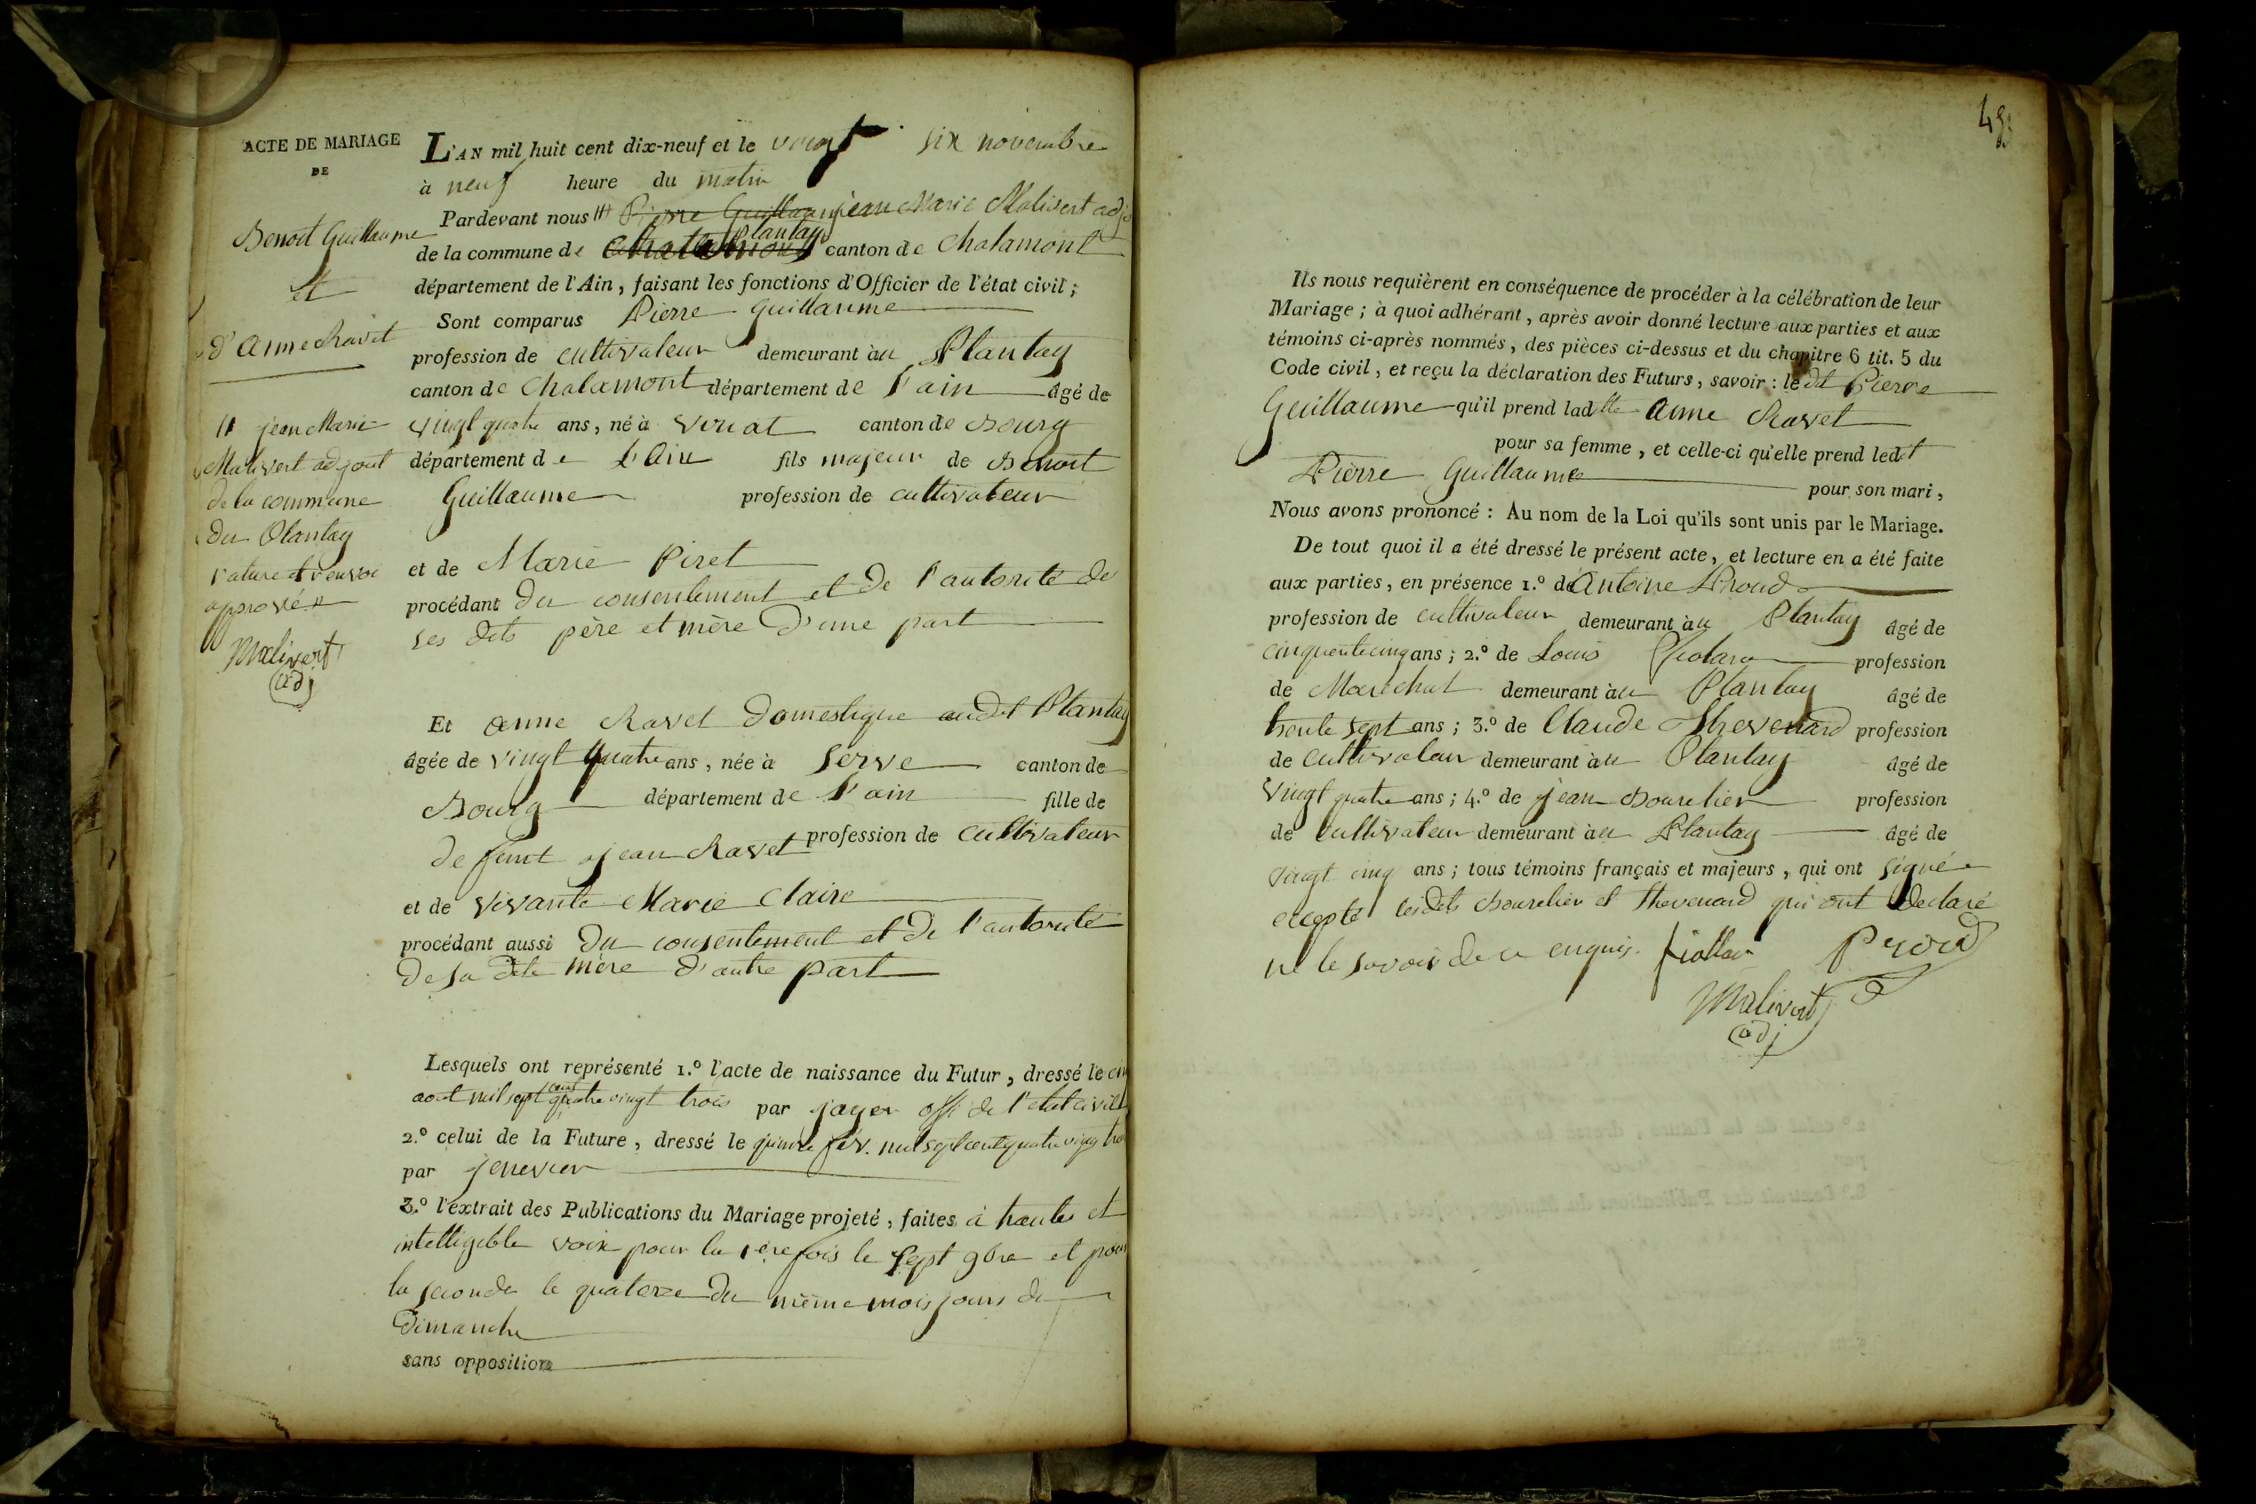 ACTE DE MARIAGE
DE
Benoit Guillaume
et
d'anne Ravet
jean Marie
Malivert adjoint
de la commune
du Plantay
rature et renvoi
apprové
Malivert
adj
L'AN mil huit cent dix-neuf et le vingt six novembre
à neuf heure du matin
Pardevant nous Pierre Guillaum jean Marie Malivert adj
de la commune de Chatamont Plantay canton de chalamont
département de l'Ain, faisant les fonctions d'Officier de l'état civil;
Sont comparus Pierre guillaume
profession de cultivateur demeurant au Plantay
canton de chalamont département de l'ain âgé de
vingt quatre ans, né à Viriat canton de Bourg
département de l'Ain fils majeur de Benoit
Guillaume profession de cultivateur
et de Marie Piret
procédant du consentement et de l'autorité de
ses dits père et mère d'une part
Et anne Ravet domestique audit Plantay
âgée de vingt quatre ans, née à Serve canton de
Bourg département de l'ain fille de
de feut jean Ravet profession de cultivateur
et de vivante Marie Claire
procédant aussi du consentement et de l'autorité
de sa dite mère d'autre part
Lesquels ont représenté 1.º l'acte de naissance du Futur, dressé le
aout mil sept cent quatre vingt trois par jayer offi de l'etat civil
2.º celui de la Future, dressé le quinze fév. mil sept cent quatre vingt
par jenevier
3.º l'extrait des Publications du Mariage projeté, faites à haute et
intelligible voix pour la 1ere fois le sept 9bre et pour
la seconde le quatorze du même mois jours de
Dimanche
sans opposition
48
Ils nous requièrent en conséquence de procéder à la célébration de leur
Mariage; à quoi adhérant, après avoir donné lecture aux parties et aux
témoins ci-après nommés, des pièces ci-dessus et du chapitre 6 tit. 5 du
Code civil, et reçu la déclaration des Futurs, savoir: le dit Pierre
Guillaume qu'il prend ladite anne Ravet
pour sa femme, et celle-ci qu'elle prend ledit
Pierre Guillaume pour son mari,
Nous avons prononcé: Au nom de la Loi qu'ils sont unis par le Mariage.
De tout quoi il a été dressé le présent acte, et lecture en a été faite
aux parties, en présence 1.º de Antoine Proud
profession de cultivateur demeurant au Plantay âgé de
cinquente cinq ans; 2.º de Louis profession
de Marechal demeurant au Plantay âgé de
trente sept ans; 3.º de Claude Thevenard profession
de cultivateur demeurant au Plantay âgé de
vingt quatre ans; 4.º de jean Bourelier profession
de cultivateur demeurant au Plantay âgé de
vingt cinq ans; tous témoins français et majeurs, qui ont signé
excepté lesdits Bourelier et Thevenard qui ont déclaré
ne le savoir de ce enquis. Proud
Malivert
adj